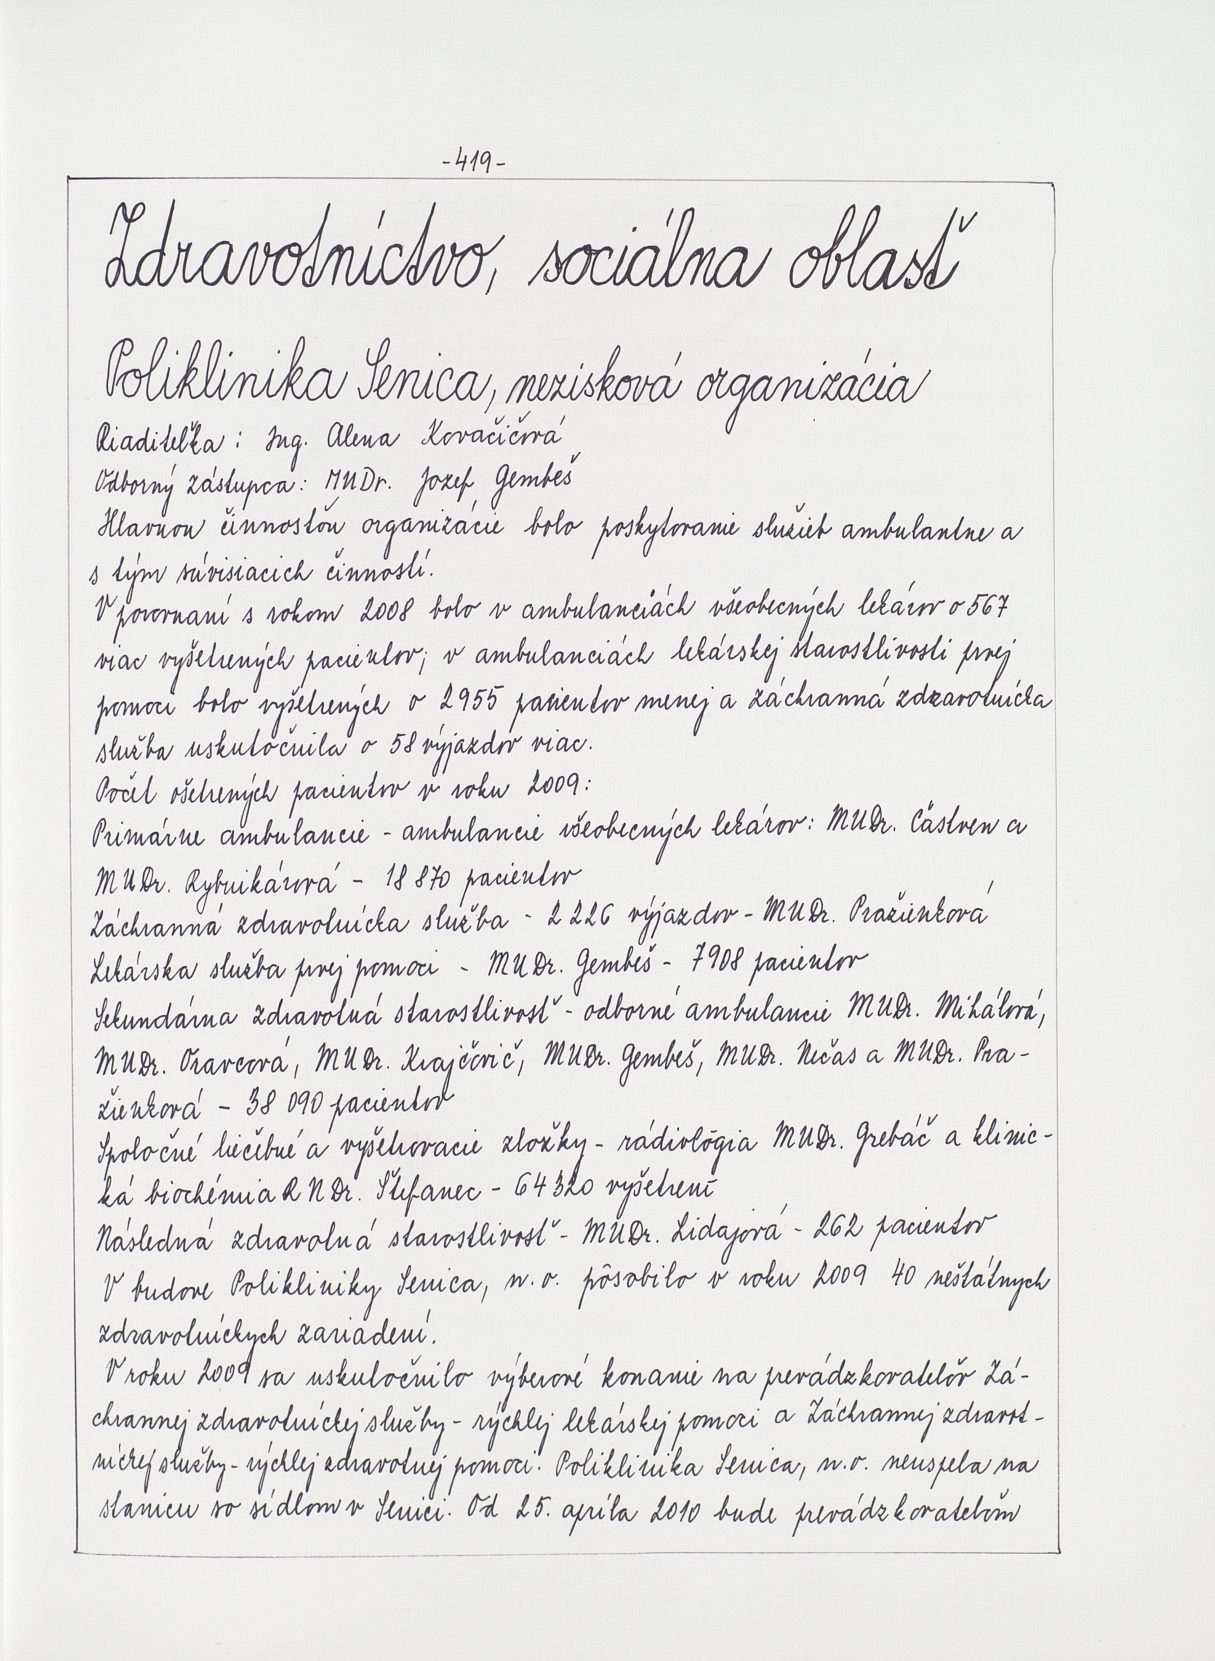 -419-
Zdravotníctvo, sociálna oblasť
Poliklinika Senica, nezisková organizácia
Riaditeľka: Ing. Alena Kovačičová
Odborný zástupca: MUDr. Jozef Gembeš
Hlavnou činnosťou organizácie bolo poskytovanie služieb ambulantne a
s tým súvisiacich činností.
V porovnaní s rokom 2008 bolo v ambulanciách všeobecných lekárov o 567
viac vyšetrených pacientov; v ambulanciách lekárskej starostlivosti prvej
pomoci bolo vyšetrených o 2955 pacientov menej a záchranná zdravotnícka
služba uskutočnila o 58 výjazdov viac.
Počet ošetrených pacientov v roku 2009:
Primárne ambulancie - ambulancie všeobecných lekárov: MUDr. Částven a
MUDr. Rybnikárová - 18 870 pacientov
Záchranná zdravotnícka služba - 2 226 výjazdov - MUDr. Pražienková
Lekárska služba prvej pomoci - MUDr. Gembeš - 7908 pacientov
Sekundárna zdravotná starostlivosť - odborné ambulancie MUDr. Mihálová,
MUDr. Oravcová, MUDr. Krajčovič, MUDr. Gembeš, MUDr. Nečas a MUDr. Pra-
žienková - 38 090 pacientov
Spoločné liečebné a vyšetrovacie zložky - rádiológia MUDr. Grebáč a klinic-
ká biochémia RNDr. Štefanec - 64 320 vyšetrení
Následná zdravotná starostlivosť - MUDr. Lidajová - 262 pacientov
V budove Polikliniky Senica, n.o. pôsobilo v roku 2009 40 neštátnych
zdravotníckych zariadení.
V roku 2009 sa uskutočnilo výberové konanie na prevádzkovateľov Zá-
chrannej zdravotníckej služby - rýchlej lekárskej pomoci a Záchrannej zdravot-
níckej služby - rýchlej zdravotnej pomoci. Poliklinika Senica, n.o. neuspela na
stanicu so sídlom v Senici. Od 25. apríla 2010 bude prevádzkovateľom